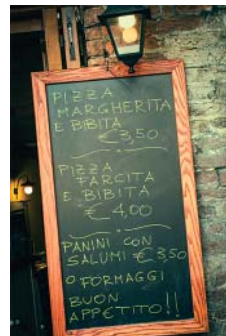 PIZZA
MARGHERITA
E BIBITA
€3,50
PIZZA
FARCITA
E BIBITA
€ 4,00
PANINI CON
SALUMI €3,50
O FORMAGGI
BUON
APPETITO!!